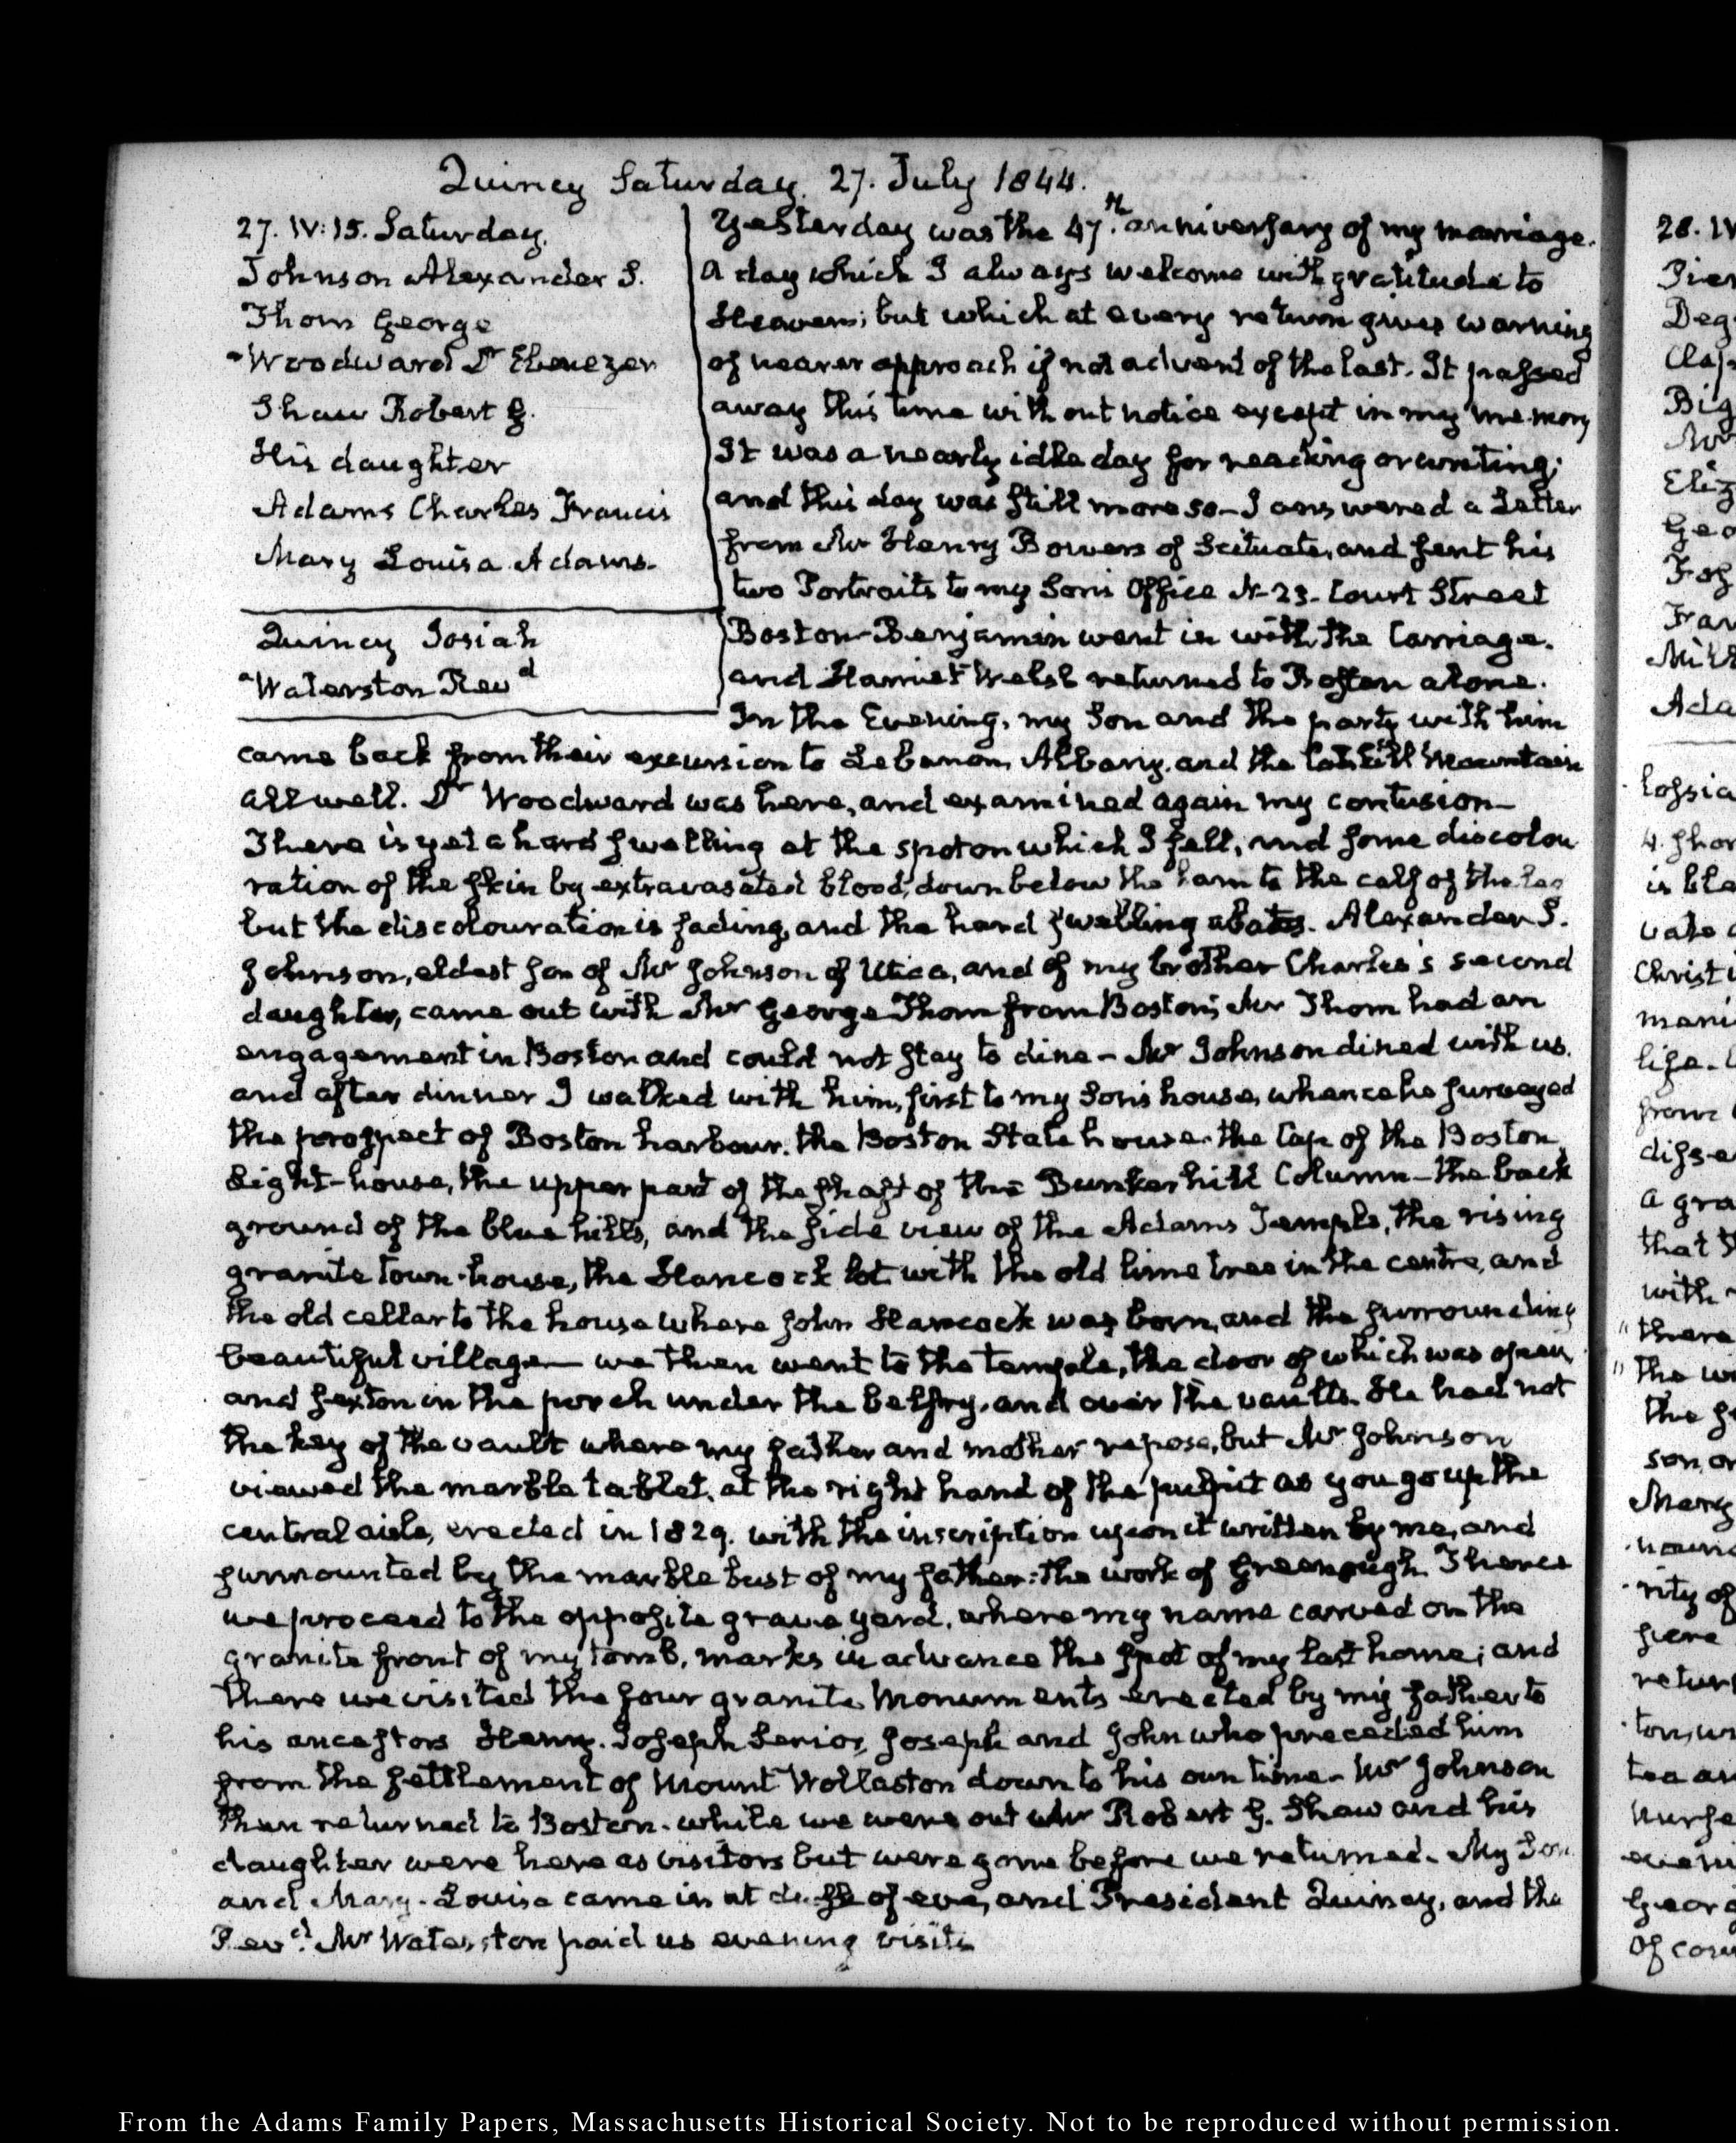 Quincy Saturday 27. July 1844.
27. IV:15. Saturday.
Johnson Alexander S.
Thom George
Woodward Dr Ebenezer
Shaw Robert G.
His daughter
Adams Charles Francis
Mary Louisa Adams.
Quincy Josiah
Waterston Revd
Yesterday was the 47th anniversary of my marriage.
A day which I always welcome with gratitude to
Heaven; but which at every return gives warning
of nearer approach if not advent of the last. It passed
away this time without notice except in my memory
It was a nearly idle day for reading or writing;
and this day was still more so- I answered a Letter
from Mr Henry Bowers of Scituate, and sent his
two Portraits to my Sons Office N- 23- Court Street
Boston- Benjamin went in with the Carriage.
and Harriet Welsh returned to Boston alone.
In the Evening, my Son and the party with him
came back from their excursion to Lebanon, Albany, and the Catskill Mountain
all well. Dr Woodward was here, and examined again my contusion-
There is yet a hard swelling at the spot on which I fell, and some discolou
ration of the skin by extravasated blood, down below the ham to the calf of the leg
but the discolouration is fading, and the hard swelling abates. Alexander S.
Johnson, eldest son of Mr Johnson of Utica, and of my brother Charles's second
daughter, came out with Mr George Thom from Boston; Mr Thom had an
engagement in Boston and could not stay to dine- Mr Johnson dined with us.
and after dinner I walked with him, first to my Sons house, whence he surveyed
the prospect of Boston harbour. the Boston State house. the Cap of the Boston
Light-house, the upper part of the shaft of the Bunker hill Column- the back
ground of the blue hills, and the side view of the Adams Temple, the rising
granite town-house, the Hancock lot with the old lime tree in the centre, and
the old cellar to the house where John Hancock was born, and the surrounding
beautiful village- we then went to the temple, the door of which was open
and sexton in the porch under the belfry, and over the vaults. He had not
the key of the vault where my father and mother repose, but Mr Johnson
viewed the marble tablet, at the right hand of the pulpit as you go up the
central aisle, erected in 1829. with the inscription upon it written by me, and
surmounted by the marble bust of my father: the work of Greenough. Thence
we proceed to the opposite grave yard, where my name carved on the
granite front of my tomb, marks in advance the spot of my last home; and
there we visited the four granite Monuments erected by my father to
his ancestors Henry. Joseph Senior, Joseph and John who preceded him
from the settlement of Mount Wollaston down to his own time- Mr Johnson
then returned to Boston. while we were out Mr Robert G. Shaw and his
daughter were here as visitors but were gone before we returned. My Son
and Mary-Louisa came in at dusk of eve, and President Quincy, and the
Revd. Mr Waterston paid us evening visits
From the Adams Family Papers, Massachusetts Historical Society. Not to be reproduced without permission.